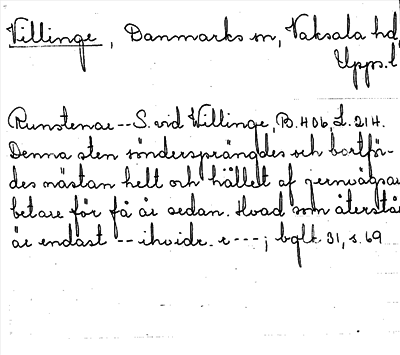 Villinge, Danmarks sn, Vaksala hd,
Upps. l
Runstenar -- S. vid Willinge, B. 406, L. 214.
Denna sten söndersprängdes och bortför-
des nästan helt och hållet af jernvägsar
betare för få år sedan. Hvad som återstår
är endast -- ihuidr. r ---; bgH 31, s. 69